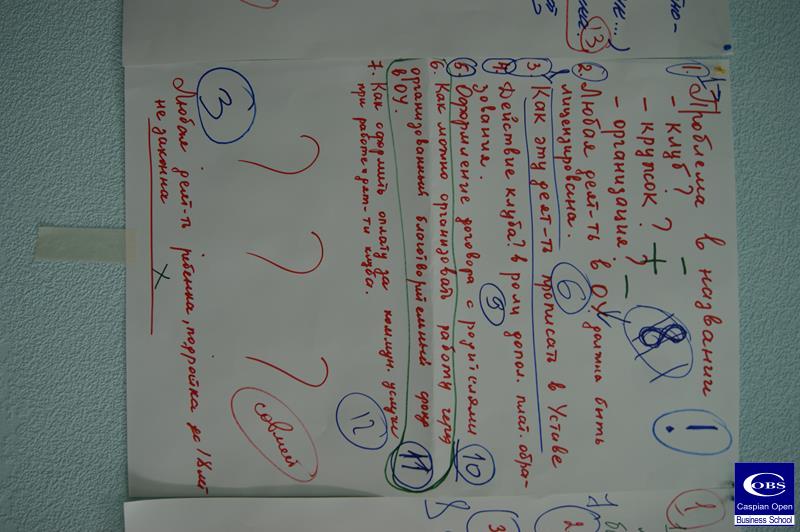 1. Проблема в названии
- клуб? -
- кружок? +
- организация? -
18
!
2. Любая деят-ть в ОУ должна быть
лицензирована.
6
3. Как эту деят-ть прописать в Уставе
4. Действие клуба? в роли допол. плат. обра-
зования.
9
5. Оформление договора с родителями
10
6. Как можно организовать работу через
организованный благотворительный фонд
в ОУ.
11
7. Как оформить оплату за коммун. услуги
при работе и деят-ти клуба.
12
? ? ?
совмещ
3
Любая деят-ть ребенка, подростка до 18 лет
не законна
13
1
2
3
8
COBS
Caspian Open
Business School